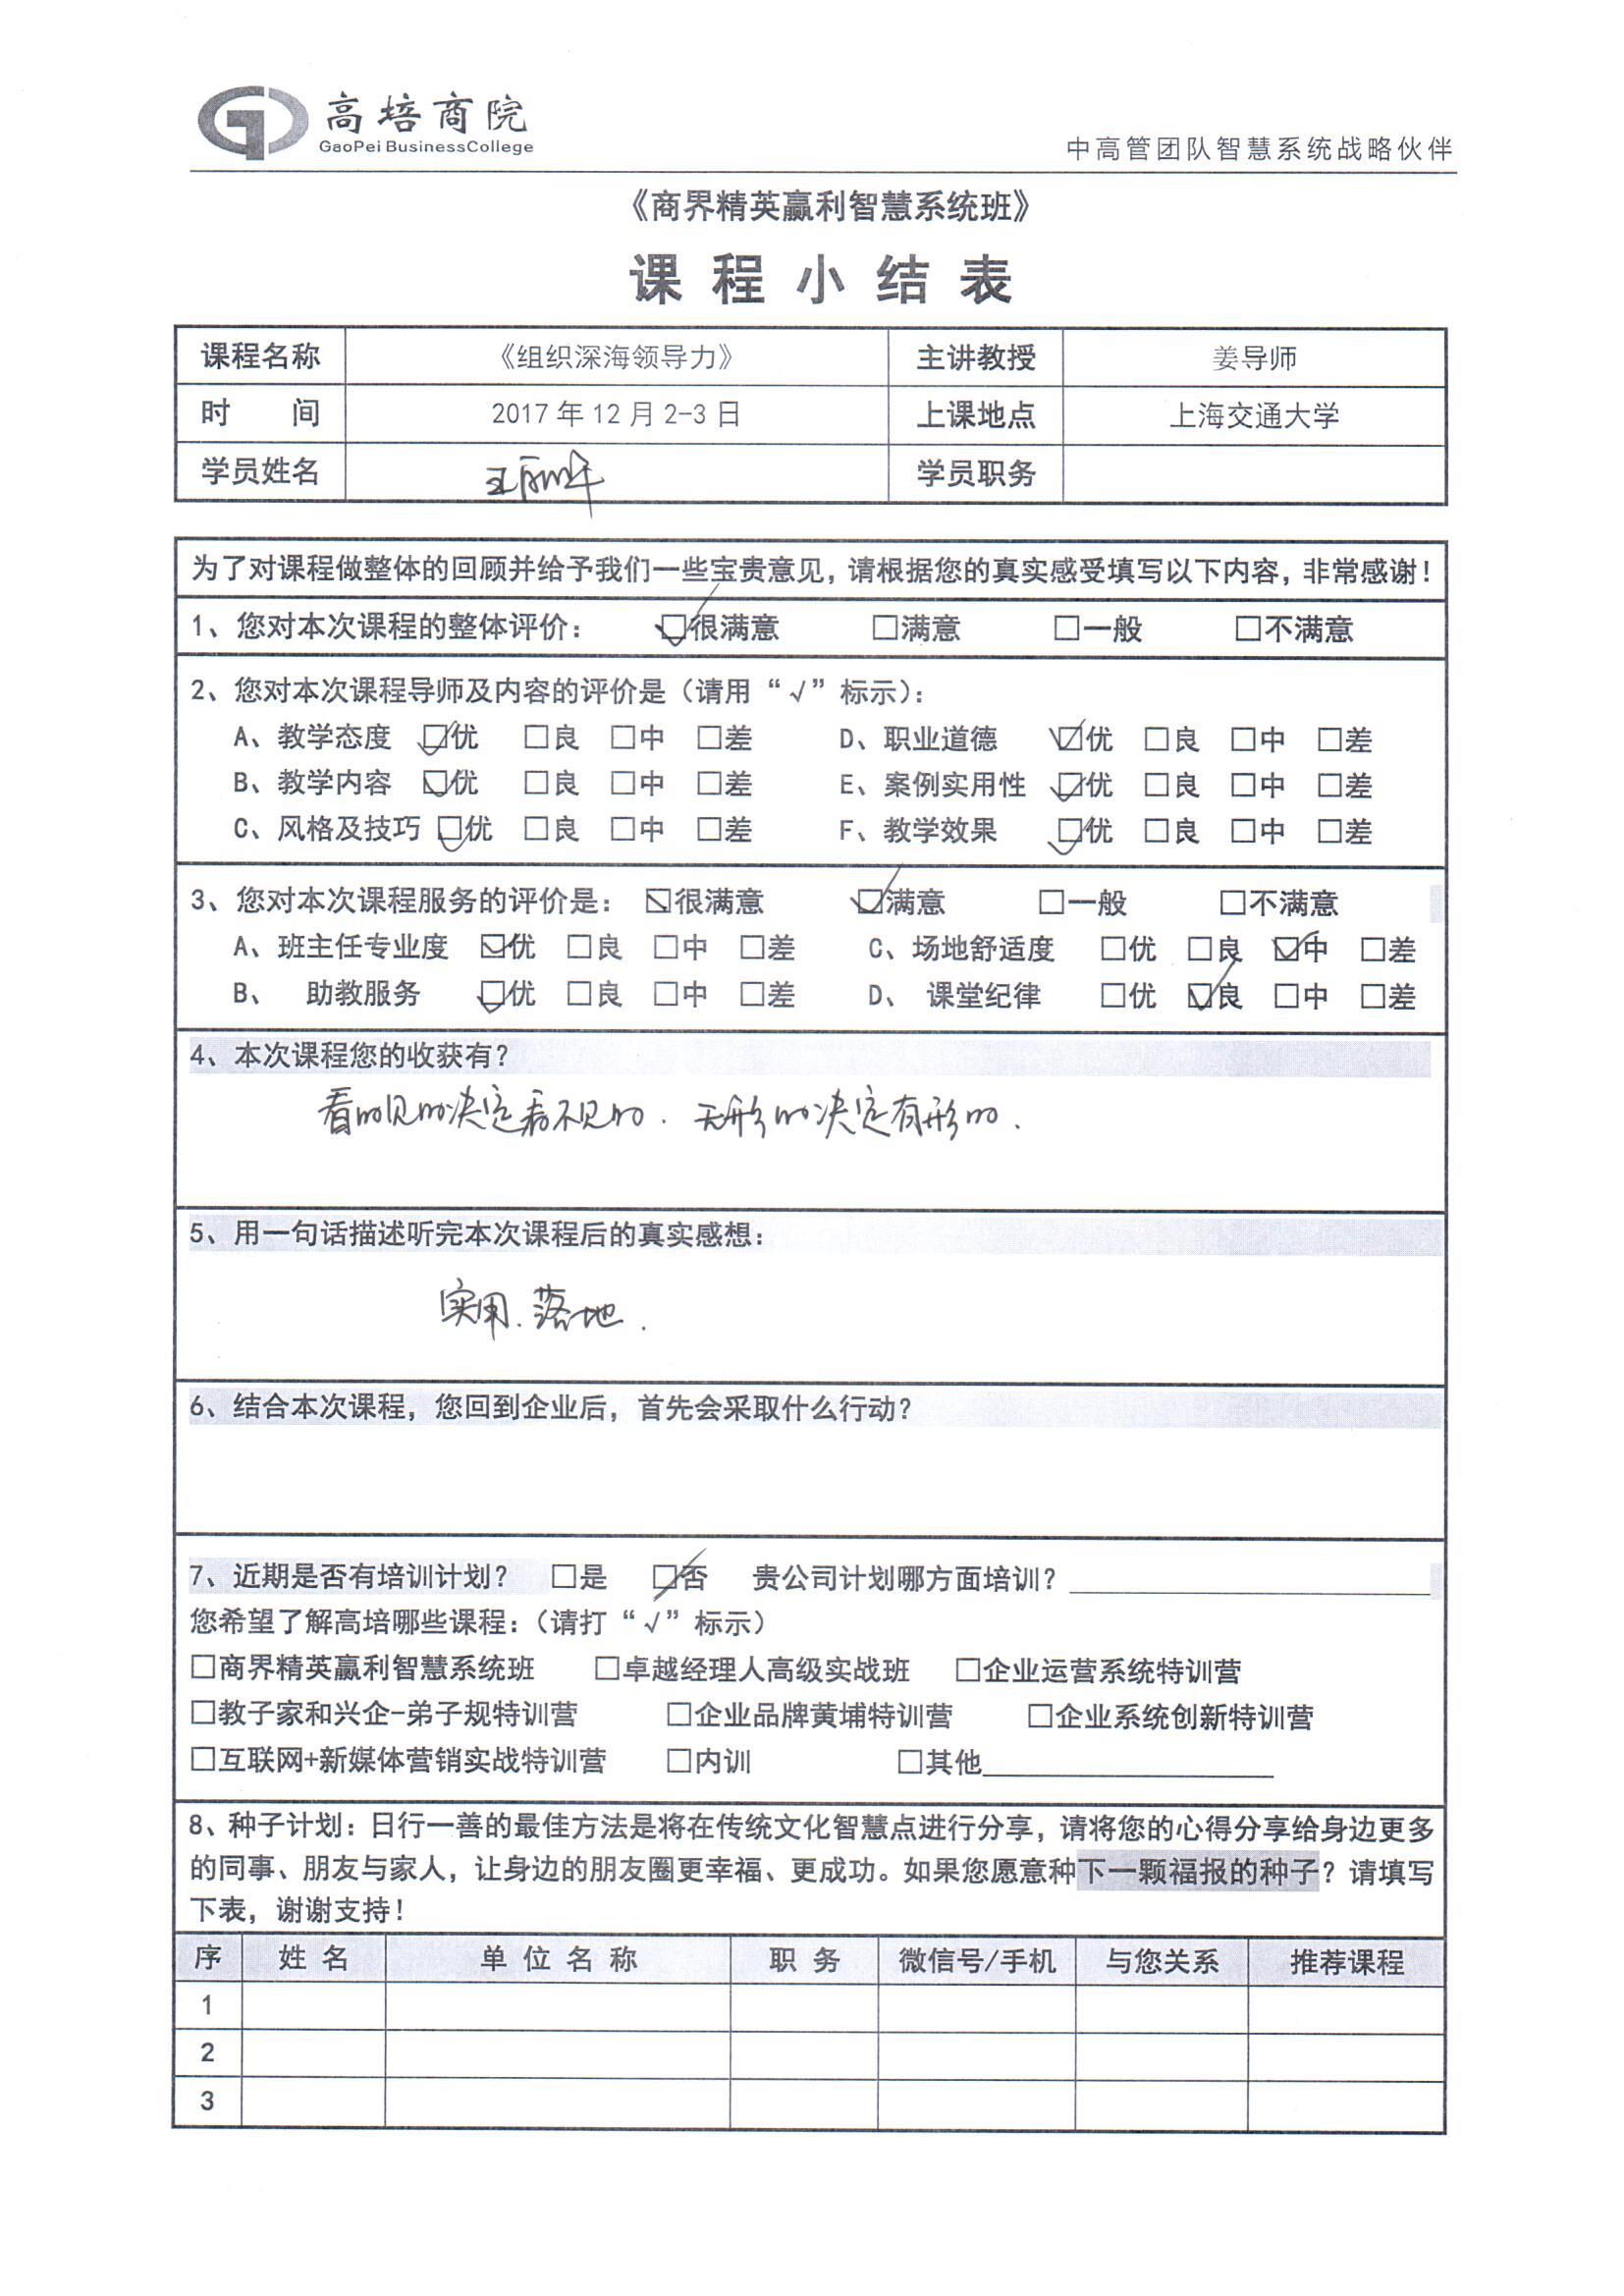 高培商院
GaoPei BusinessCollege
中高管团队智慧系统战略伙伴
《商界精英赢利智慧系统班》
课程小结表
课程名称 《组织深海领导力》 主讲教授 姜导师
时 间 2017年12月2-3日 上课地点 上海交通大学
学员姓名 学员职务
为了对课程做整体的回顾并给予我们一些宝贵意见，请根据您的真实感受填写以下内容，非常感谢！
1、您对本次课程的整体评价： ☑很满意 □满意 □一般 □不满意
2、您对本次课程导师及内容的评价是（请用“√”标示）：
A、教学态度 ☑优 □良 □中 □差 D、职业道德 ☑优 □良 □中 □差
B、教学内容 ☑优 □良 □中 □差 E、案例实用性 ☑优 □良 □中 □差
C、风格及技巧 ☑优 □良 □中 □差 F、教学效果 ☑优 □良 □中 □差
3、您对本次课程服务的评价是： ☑很满意 ☑满意 □一般 □不满意
A、班主任专业度 ☑优 □良 □中 □差 C、场地舒适度 □优 □良 ☑中 □差
B、 助教服务 ☑优 □良 □中 □差 D、 课堂纪律 □优 ☑良 □中 □差
4、本次课程您的收获有？
看的见的决定看不见的．无形的决定有形的．
5、用一句话描述听完本次课程后的真实感想：
实用．落地．
6、结合本次课程，您回到企业后，首先会采取什么行动？
7、近期是否有培训计划？ □是 ☑否 贵公司计划哪方面培训？
您希望了解高培哪些课程：（请打“√”标示）
□商界精英赢利智慧系统班 □卓越经理人高级实战班 □企业运营系统特训营
□教子家和兴企-弟子规特训营 □企业品牌黄埔特训营 □企业系统创新特训营
□互联网+新媒体营销实战特训营 □内训 □其他
8、种子计划：日行一善的最佳方法是将在传统文化智慧点进行分享，请将您的心得分享给身边更多
的同事、朋友与家人，让身边的朋友圈更幸福、更成功。如果您愿意种下一颗福报的种子？请填写
下表，谢谢支持！
序 姓名 单位名称 职务 微信号/手机 与您关系 推荐课程
1
2
3